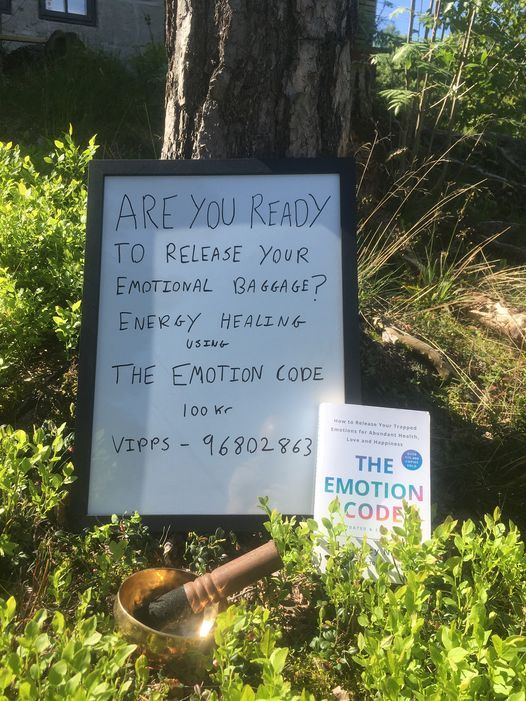 ARE YOU READY
TO RELEASE YOUR
EMOTIONAL BAGGAGE?
ENERGY HEALING
USING
THE EMOTION CODE
100 Kr
VIPPS - 96802863
How to Release Your Trapped
Emotions for Abundant Health,
Love and Happiness
THE
EMOTION
CODE